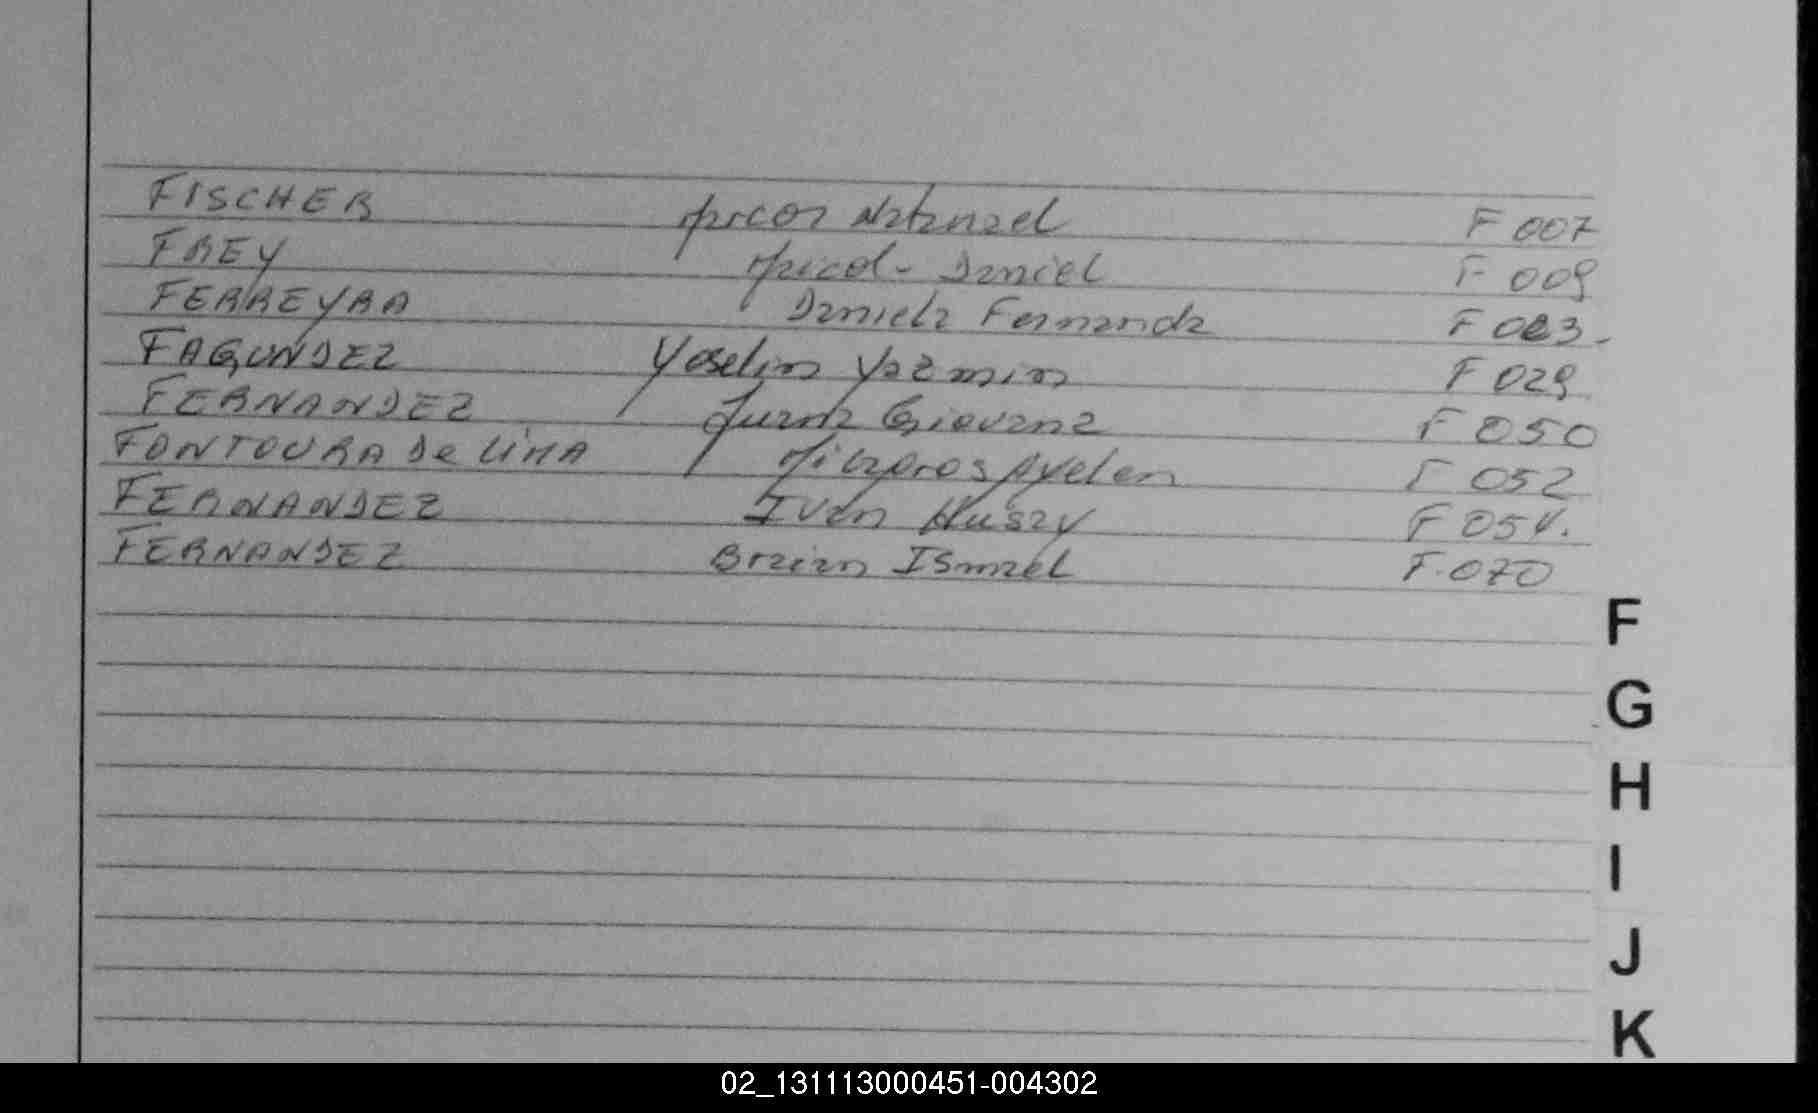 FISCHER Marcos Natanael F 007
FREY Maicol - Daniel F 009
FERREYRA Daniela Fernanda F 023.
FAGUNDEZ Yoselin Yazmin F 029
FERNANDEZ Juana Giovana F 050
FONTOURA De LIMA Milagros Ayelen F 052
FERNANDEZ Ivan F 054.
FERNANDEZ Braian Ismael F.070
F
G
H
I
J
K
02_131113000451-004302